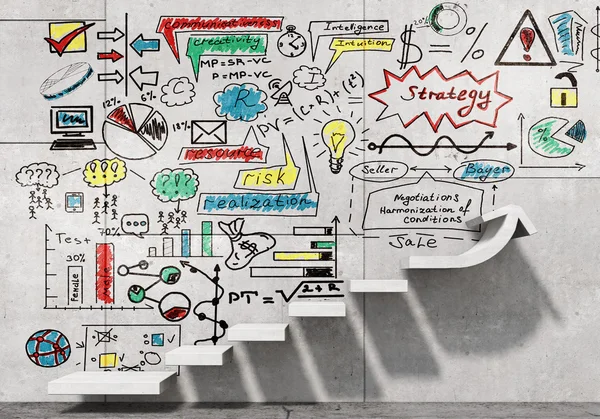 communicativeness
creativity
MP=SR-VC
P=MP-VC
Intelligence
Intuition
20%
$ = %
Strategy
12%
6%
18%
C
R
I
PV = (c+R)+(t²)
resource
risk
realization
%
Seller
Bayer
Negotiations
Harmonization of
conditions
Sale
???
!!!
!?!
Test
70%
30%
Female
male
$
PT = √2+R